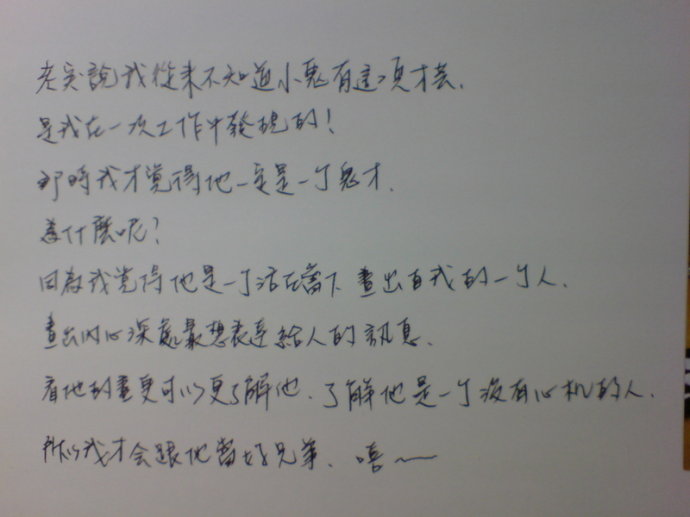 老实說我從來不知道小鬼有這項才芸.
是我在一次工作中發現的!
那時我才覺得他一定是一个鬼才.
為什麼呢?
因為我覺得他是一个活在當下 畫出自我的一个人.
畫出內心深處最想表達給人的訊息.
看他的畫更可以更了解他.了解他是一个沒有心机的人.
所以我才会跟他當好兄弟. 嘻~